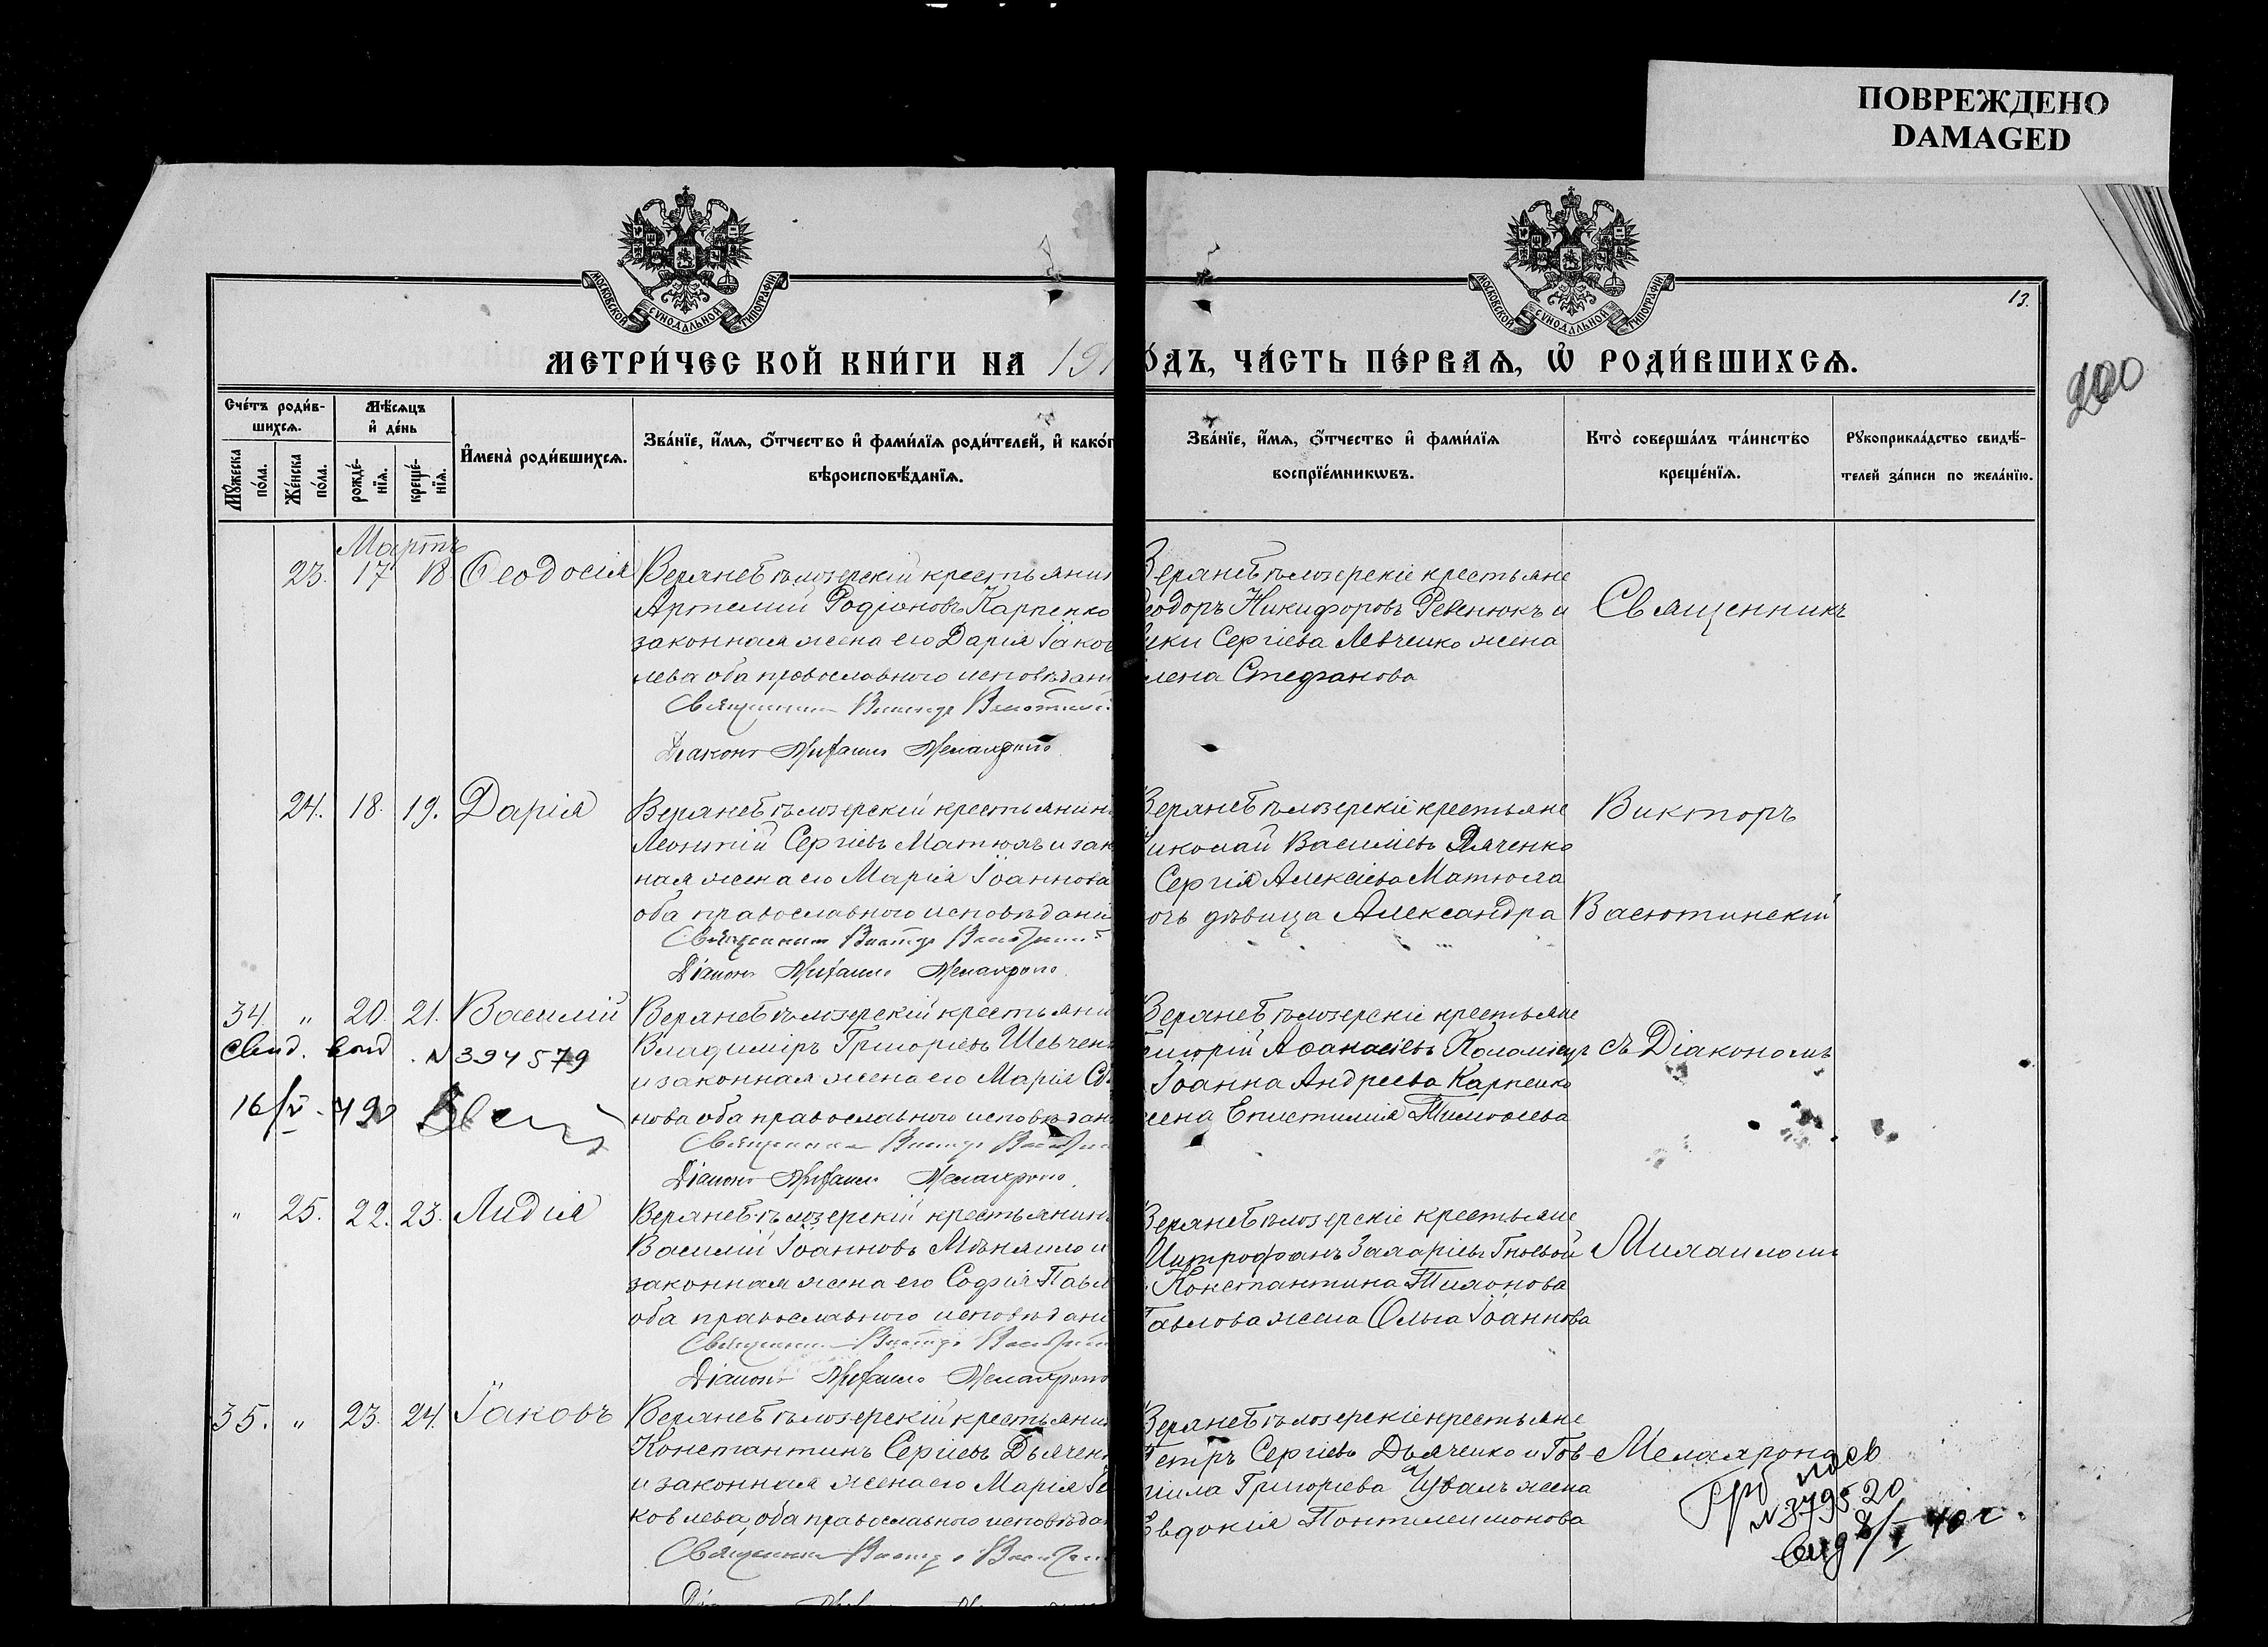 ПОВРЕЖДЕНО
DAMAGED
МОСКОВСКОЙ СѴНОДАЛЬНОЙ ТИПОГРАФІИ
МОСКОВСКОЙ СѴНОДАЛЬНОЙ ТИПОГРАФІИ
13.
200
МЕТРИ́ЧЕС КОЙ КНИ́ГИ НА 191
О́ДЪ, ЧА́СТЬ ПЕ́РВАѦ, Ѡ҆ РОДИ́ВШИХСѦ.
Сче́тъ роди́в-
шихсѧ.
Мꙋ́жеска по́ла.
Же́нска по́ла.
Мѣ́сѧцъ
и҆ де́нь
рожде́-
нїѧ.
креще́-
нїѧ.
И҆мена̀ роди́вшихсѧ.
Зва́нїе, и҆́мѧ, ѻ҆́тчество и҆ фами́лїѧ роди́телей, и҆ како́г
вѣроисповѣ́данїѧ.
Зва́нїе, и҆́мѧ, ѻ҆́тчество и҆ фами́лїѧ
воспрїе́мникѡвъ.
Кто̀ соверша́лъ та́инство
креще́нїѧ.
Рꙋкоприкла́дство свидѣ́-
телей за́писи по жела́нїю.
Мартъ
23. 17 18 Ѳеодосія
Верхнебѣлозерскій крестьянин
Артемій Родіоновъ Карпенко
законная жена его Дарія Іаков
лева оба православного исповѣдані
Священникъ Викторъ
Діаконъ Михаилъ
ерхнебѣлозерскіе крестьяне
еодоръ Никифоровъ Ревенюкъ и
уки Сергіева Левченко жена
лена Стефанова
Священникъ
24. 18. 19. Дарія
Верхнебѣлозерскій крестьянинъ
Леонтій Сергіевъ Матюхъ и зак
ная жена его Марія Іоаннова
оба православного исповѣдані
Священникъ Викторъ
Діаконъ Михаилъ
Верхнебѣлозерскіе крестьяне
иколай Василіевъ Дяченко
Сергія Алексіева Матюха
очь дѣвица Александра
Викторъ
Васютинскій
34. " 20. 21. Василій
Свид. выд. N 394579
16/V
Верхнебѣлозерскій крестьяни
Владиміръ Григоріевъ Шевчен
и законная жена его Марія
нова оба православного исповѣдан
Священникъ Викторъ
Діаконъ Михаилъ
Верхнебѣлозерскіе крестьяне
ригорій Аѳанасіевъ Коломіецъ
Іоанна Андреева Карпенко
жена Епистимія Тимоѳеева
съ Діакономъ
" 25. 22. 23. Лидія
Верхнебѣлозерскій крестьянинъ
Василій Іоанновъ Мѣняйло и
законная жена его Софія Павл
оба православного исповѣдані
Священникъ Викторъ
Діаконъ Михаилъ
Верхнебѣлозерскіе крестьяне
Митрофанъ Захаріевъ Гноевой
Константина Тихонова
Павлова жена Ольга Іоаннова
Михаиломъ
35. " 23. 24. Іаковъ
Верхнебѣлозерскій крестьянин
Константинъ Сергіевъ Дьячен
и законная жена его Марія Іа
ковлева, оба православного исповѣдан
Священникъ Викторъ
Верхнебѣлозерскіе крестьяне
Петръ Сергіевъ Дьяченко и Гав
ріила Григорьева Чуваль жена
Евдокія Пантелеимонова
N 379520
8/V 40 г.